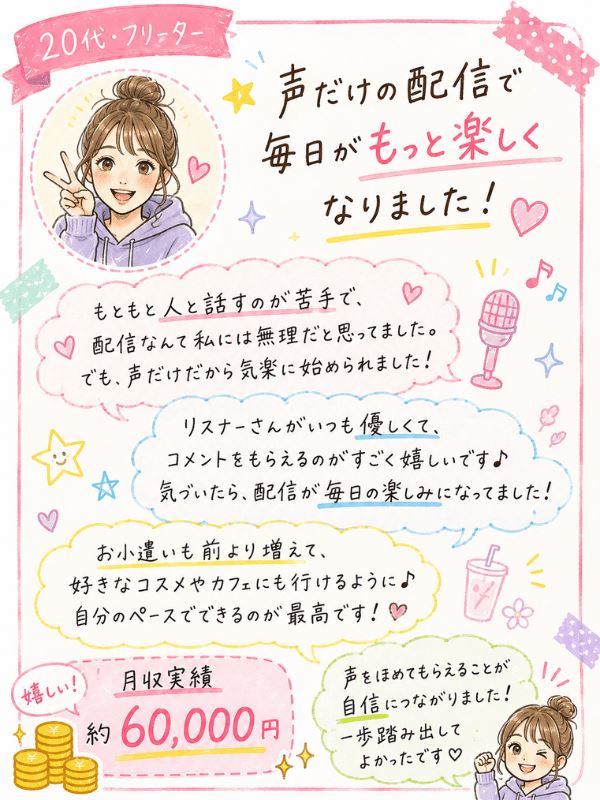 20代・フリーター
声だけの配信で
毎日がもっと楽しく
なりました!
もともと人と話すのが苦手で、
配信なんて私には無理だと思ってました。
でも、声だけだから気楽に始められました!
リスナーさんがいつも優しくて、
コメントをもらえるのがすごく嬉しいです♪
気づいたら、配信が毎日の楽しみになってました!
お小遣いも前より増えて、
好きなコスメやカフェにも行けるように♪
自分のペースでできるのが最高です!
嬉しい!
月収実績
約60,000円
声をほめてもらえることが
自信につながりました!
一歩踏み出して
よかったです♡